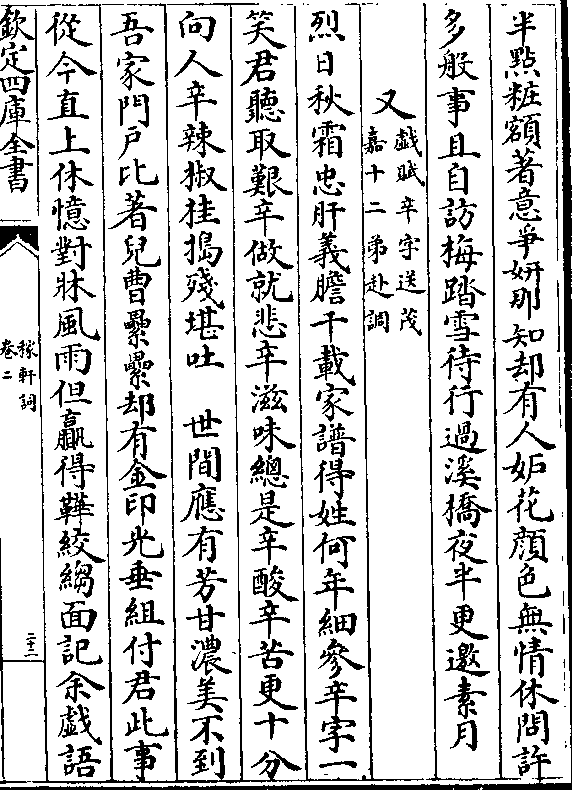 半點粧額著意爭妍那知却有人妬花顏色無情休問許
多般事且自訪梅踏雪待行過溪橋夜半更邀素月
又
戯賦辛字送茂
嘉十二弟赴調
烈日秋霜忠肝義膽千載家譜得姓何年細參辛字一
笑君聽取艱辛做就悲辛滋味總是辛酸辛苦更十分
向人辛辣椒桂搗殘堪吐　世間應有芳甘濃美不到
吾家門戶比著兒曹纍纍却有金印光垂組付君此事
從今直上休憶對牀風雨但贏得鞾紋縐面記余戯語
欽定四庫全書
稼軒詞
卷二